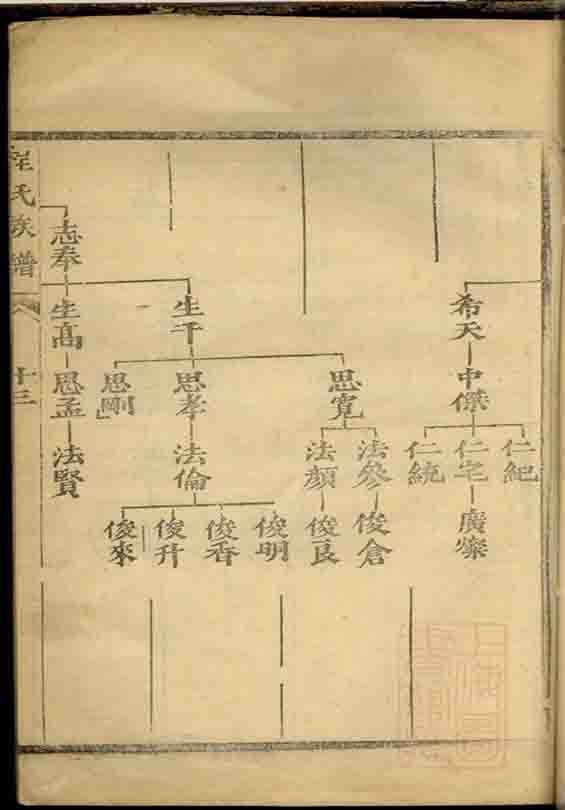 希天
中傑
仁紀
仁宅
仁統
廣燦
生千
思寬
思孝
思剛
法參
法顏
法倫
俊倉
俊良
俊明
俊香
俊升
俊來
志奉
生高
思孟
法賢
氏族譜
八
十三